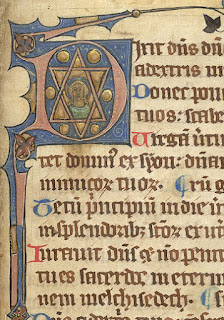 Dixit dñs dñ
adextris m
Donec pon
tuos: scabe
Uirgā uirtu
tet domin᷒ ex syon: dña
inimicoꝝ tuoꝝ.
Tecū principiū in die uir
insplendoribꝫ scoꝝ ex ut
Iurauit dñs et nō penit
tu es sacerdos in etern
nem melchisedech.